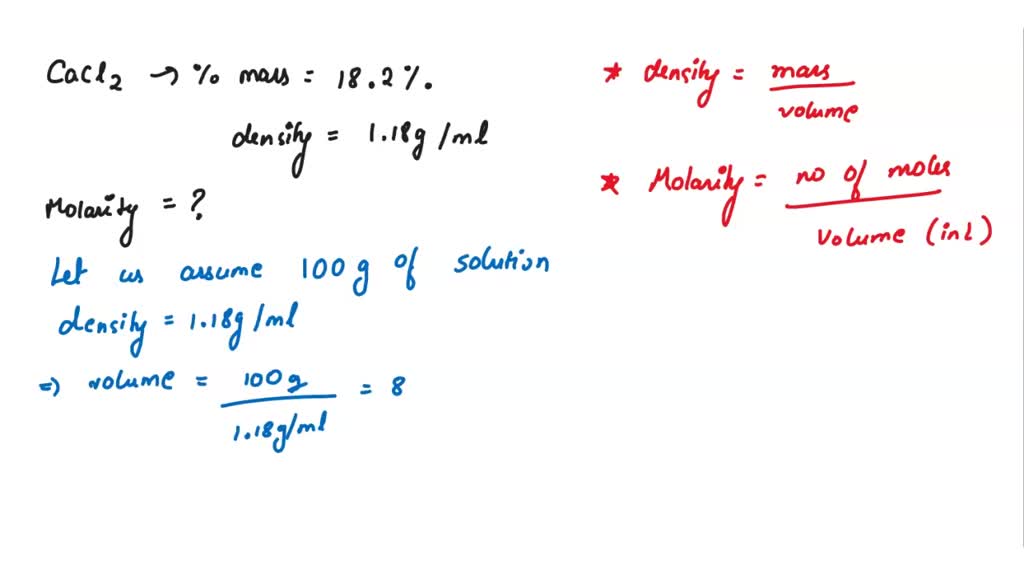 CaCl2 → % mass = 18.2%.
density = 1.18g/ml
Molarity = ?
Let us assume 100g of solution
density = 1.18g/ml
=) volume = 100g / 1.18g/ml = 8
* density = mass / volume
* Molarity = no of moles / volume (in L)